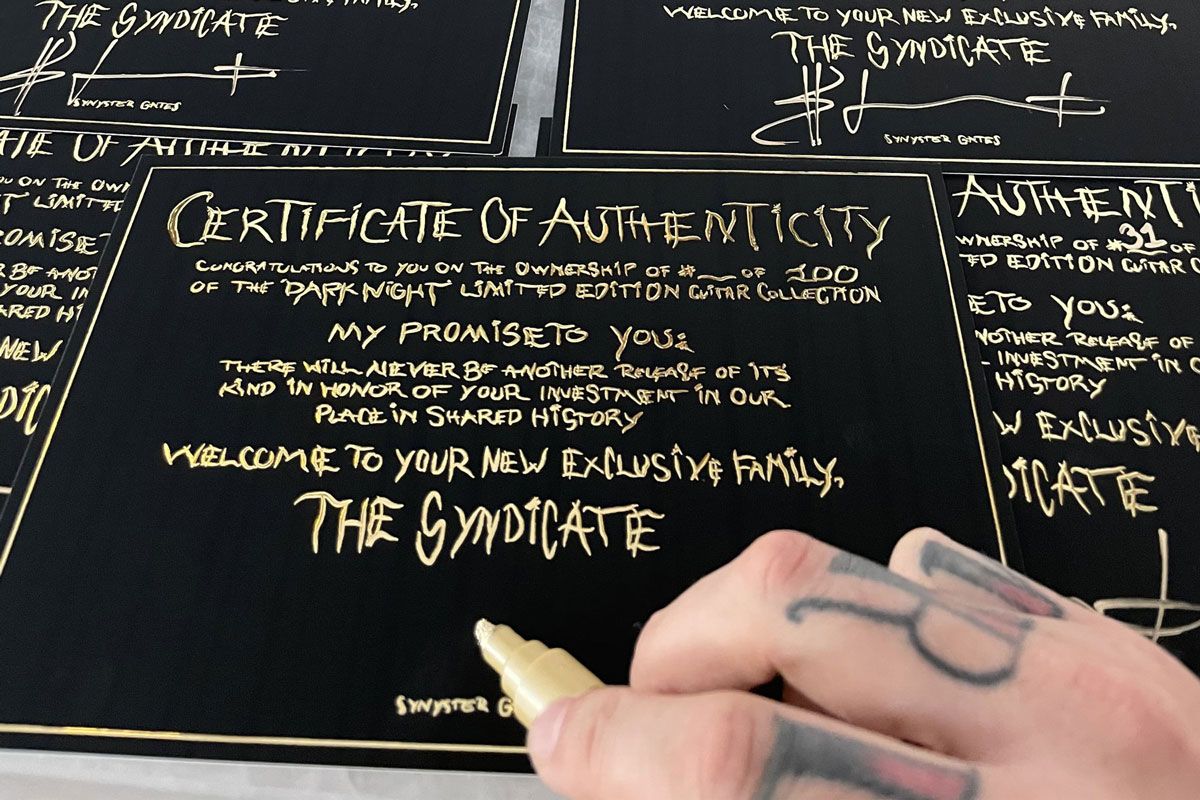 THE SYNDICATE
SYNYSTER GATES
WELCOME TO YOUR NEW EXCLUSIVE FAMILY,
THE SYNDICATE
SYNYSTER GATES
CERTIFICATE OF AUTHENTICITY
CONGRATULATIONS TO YOU ON THE OWNERSHIP OF #__ OF 100
OF THE "DARK NIGHT" LIMITED EDITION GUITAR COLLECTION
MY PROMISE TO YOU:
THERE WILL NEVER BE ANOTHER RELEASE OF ITS
KIND IN HONOR OF YOUR INVESTMENT IN OUR
PLACE IN SHARED HISTORY
WELCOME TO YOUR NEW EXCLUSIVE FAMILY,
THE SYNDICATE
SYNYSTER G
OF AUTHENTI
YOU ON THE OWN
LIMITED
PROMISE
YOUR IN
NEW
AUTHENTI
OWNERSHIP OF #31 OF
EDITION GUITAR C
TO YOU:
ANOTHER RELEASE OF
INVESTMENT IN O
HISTORY
EXCLUSIVE
DICATE